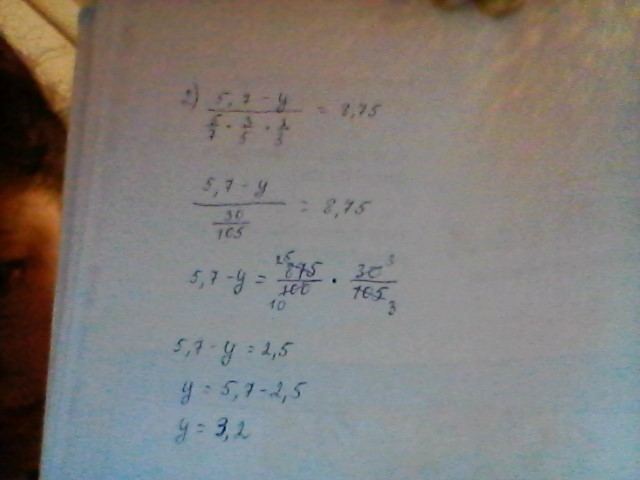 2) (5,7 - y) / (5/7 · 3/5 · 2/3) = 8,75
(5,7 - y) / (30/105) = 8,75
5,7 - y = 875/100 · 30/105
25 3
10 3
5,7 - y = 2,5
y = 5,7 - 2,5
y = 3,2